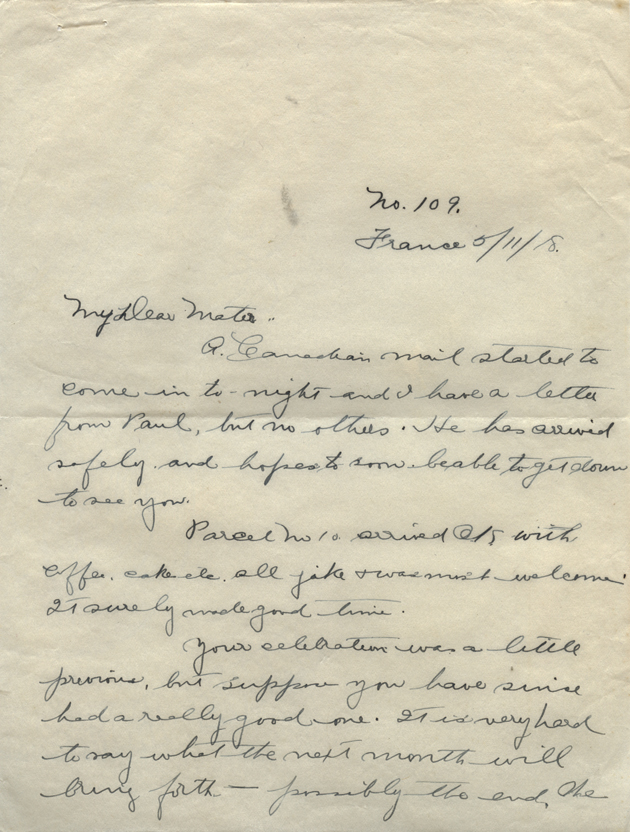 No. 109.
France 5/11/18.
My Dear Mater..
A Canadian mail started to
come in to-night and I have a letter
from Paul, but no others. He has arrived
safely and hopes to soon be able to get down
to see you.
Parcel No 10 arrived O/K with
coffee, cake etc. all jake & was most welcome.
It surely made good time.
Your celebration was a little
previous, but suppose you have since
had a really good one. It is very hard
to say what the next month will
bring forth — possibly the end, the